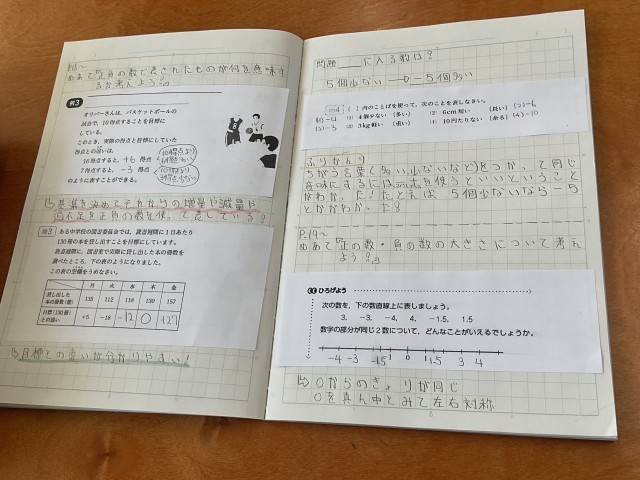 めあて 正負の数で表されたものが何を意味す
るか考えよう。
例3
オリバーさんは、バスケットボールの
試合で、10得点することを目標に
している。
このとき、実際の得点と目標にしていた
得点との違いは、
16得点すると、+6 得点
7得点すると、-3 得点
のように表すことができる。
10得点より
6得点多い
10得点より
3得点少ない
↳基準を決めてそれからの増量や減量や
過不足を正負の数を使って表している?
問3
ある中学校の図書委員会では、読書週間に1日あたり
130冊の本を貸し出すことを目標にしています。
読書週間に、図書室で実際に貸し出した本の冊数を
調べたところ、下の表のようになりました。
この表の空欄をうめなさい。
月 火 水 木 金
貸し出した本の冊数(冊) 135 112 118 130 157
目標(130冊)との違い +5 -18 -12 0 +27
↳目標との違いが分かりやすい!
問題 に入る数は?
5個少ない → -5個多い
問4
( )内のことばを使って、次のことを表しなさい。
(1) 4個少ない (多い) (2) 6cm短い (長い)
(3) 3kg軽い (重い) (4) 10円たりない (余る)
(1)-4
(2)-6
(3)-3
(4)-10
ふりかえり
ちがう言葉(多い、少ないなど)をつかって同じ
意味にするには
を使うといいということ
がわかった。たとえば 5個少ないなら-5
とかがわかった。
P.19~
めあて 正の数・負の数の大きさについて考え
よう。
ひろげよう
次の数を、下の数直線上に表しましょう。
3, -3, -4, 4, -1.5, 1.5
数字の部分が同じ2数について、どんなことがいえるでしょうか。
-4 -3 -1.5 0 1.5 3 4
↳0からのきょりが同じ
0を真ん中とみて左右対称